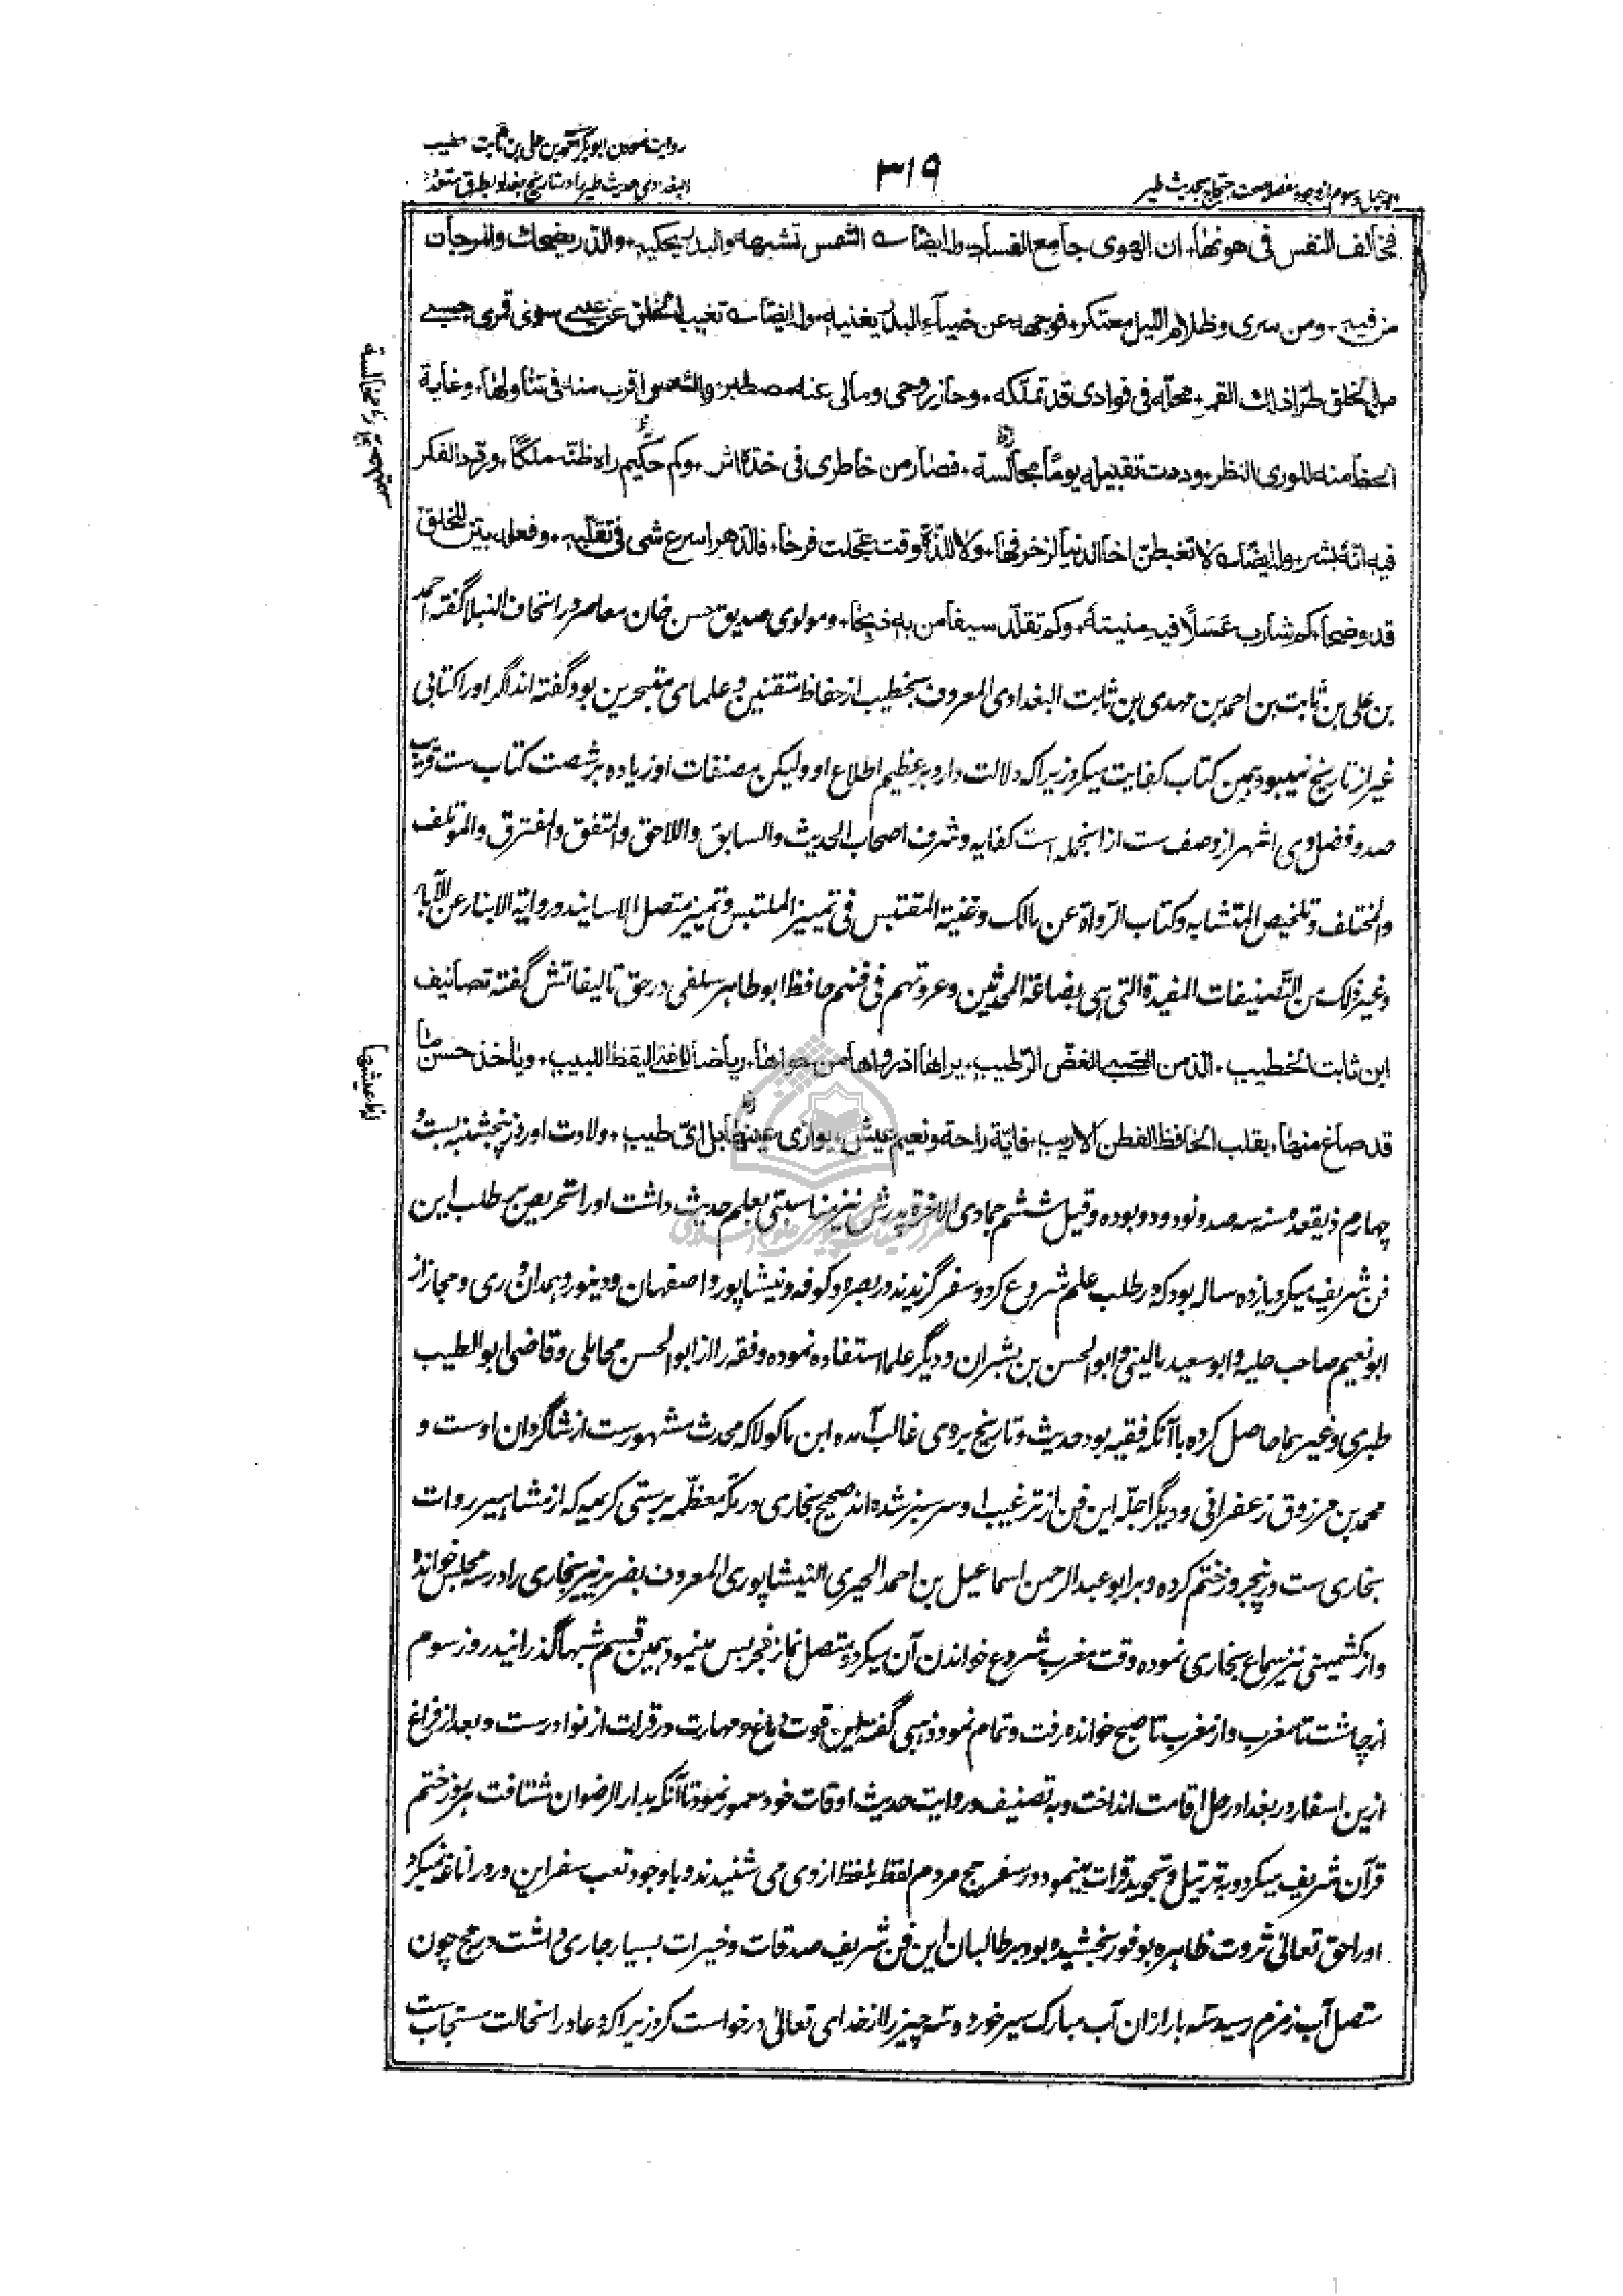 روایت نمودن ابوبکر احمد بن علی بن ثابت خطیب
البغدادی حدیث طیر را در تاریخ بغداد بطرق متعدده
۳۱۹
وجه چهل و سوم از وجوه مفصله صحت احتجاج بحدیث طیر
فخالف النفس فی هونها ٭ ان الهوی جامع الفساد وله ایضا الشمس تشبهه والبدر یحکیه ٭ والدر یضحک والمرجان
من فیه ٭ ومن سری وظلام اللیل معتکر ٭ فوجهه عن ضیاء البدر یغنیه وله ایضا تغیب الخلق عن عینی سوی قمری حسبی
من الخلق طرا ذاک القمر ٭ محله فی فوادی قد تملکه ٭ وحاز روحی ومالی عنه مصطبر والشمس اقرب منه فی تناولها ٭ وغایة
الحظ منه للوری النظر ٭ وددت تقبیله یوما مجالسة ٭ فصار من خاطری فی خده اثر ٭ وکم حکیم راه ظنه ملکا ٭ وردد الفکر
فیه انه بشر ٭ وله ایضا لا تغبطن اخا الدنیا لزخرفها ٭ ولا للذة وقت عجلت فرحا ٭ فالدهر اسرع شی فی تقلبه ٭ وفعله بین للخلق
قد وضحا ٭ کم شارب عسلا فیه منیته ٭ وکم تقلد سیفا من به ذبحا ٭ ومولوی صدیق حسن خان معاصر در اتحاف النبلا گفته احمد
بن علی بن ثابت بن احمد بن مهدی بن ثابت البغدادی المعروف بخطیب از حفاظ متقنین و علمای متبحرین بود و گفته اند اگر او را کتابی
غیر از تاریخ نمیبود همین کتاب کفایت میکرد زیرا که دلالت دارد بر عظیم اطلاع او ولیکن مصنفات او زیاده بر شصت کتاب ست قریب
صد و فضل وی اشهر از وصف ست از انجمله است کفایه و شرف اصحاب الحدیث والسابق واللاحق والمتفق والمفترق والموتلف
والمختلف و تلخیص المتشابه و کتاب الرواة عن مالک و غنیة المقتبس فی تمییز الملتبس و تمییز متصل الاسانید و روایة الابناء عن الآباء
وغیر ذلک من التصنیفات المفیدة التی هی بضاعة المحدثین وعروتهم فی فنهم حافظ ابو طاهر سلفی در حق تالیفاتش گفته تصانیف
ابن ثابت الخطیب ٭ الذ من الصبی الغض الرطیب ٭ یراها اذ رواها من حواها ٭ ریاضا للفتی الیقظ اللبیب ٭ ویاخذ حسن ما
قد صاغ منها ٭ بقلب الحافظ الفطن الاریب ٭ فایة راحة ونعیم عیش ٭ یوازی عیشها بل ای طیب ٭ ولادت او روز پنجشنبه بست و
چهارم ذیقعده سنه سه صد و نود و دو بوده وقیل ششم جمادی الاخرة پدرش نیز مناسبتی بعلم حدیث داشت او را تحریص بر طلب این
فن شریف میکرد یازده ساله بود که در طلب علم شروع کرد و سفر گزیدند در بصره و کوفه و نیشاپور و اصفهان و دینور و همدان و ری و حجاز از
ابو نعیم صاحب حلیه و ابو سعید مالینی و ابو الحسن بن بشران و دیگر علما استفاده نموده و فقه را از ابو الحسن محاملی و قاضی ابو الطیب
طبری و غیرهما حاصل کرده با آنکه فقیه بود حدیث و تاریخ بر وی غالب آمده ابن ماکولا که محدث مشهورست از شاگردان اوست و
محمد بن مرزوق زعفرانی و دیگر اجله این فن از ترغیب او سرسبز شده اند صحیح بخاری در مکه معظمه بر ستی کریمه که از مشاهیر روات
بخاری ست در پنجروز ختم کرده و بر ابو عبد الرحمن اسماعیل بن احمد الحیری النیشاپوری المعروف بضریر نیز بخاری را در سه مجلس خوانده
و از کشمیهنی نیز سماع بخاری نموده وقت مغرب شروع خواندن آن میکرد و متصل نماز فجر بس مینمود همین قسم شبها گذرانید روز سوم
از چاشت تا مغرب و از مغرب تا صبح خوانده رفت و تمام نمود ذهبی گفته این قوت دماغ و مهارت در قرات از نوادرست و بعد از فراغ
ازین اسفار در بغداد رحل اقامت انداخت و به تصنیف و روایت حدیث اوقات خود معمور نمود تا آنکه بدار الرضوان شتافت هر روز ختم
قرآن شریف میکرد و به ترتیل و تجوید قرات مینمود و در سفر حج مردم لفظ بلفظ از وی می شنیدند و با وجود تعب سفر این ورد را ناغه نمیکرد
او را حق تعالی ثروت ظاهره بوفور بخشیده بود بر طالبان این فن شریف صدقات و خیرات بسیار جاری داشت در حج چون
متصل آب زمزم رسید سه بار ازان آب مبارک سیر خورد و سه چیز را از خدای تعالی درخواست کرد زیرا که دعا در انحالت مستجاب ست